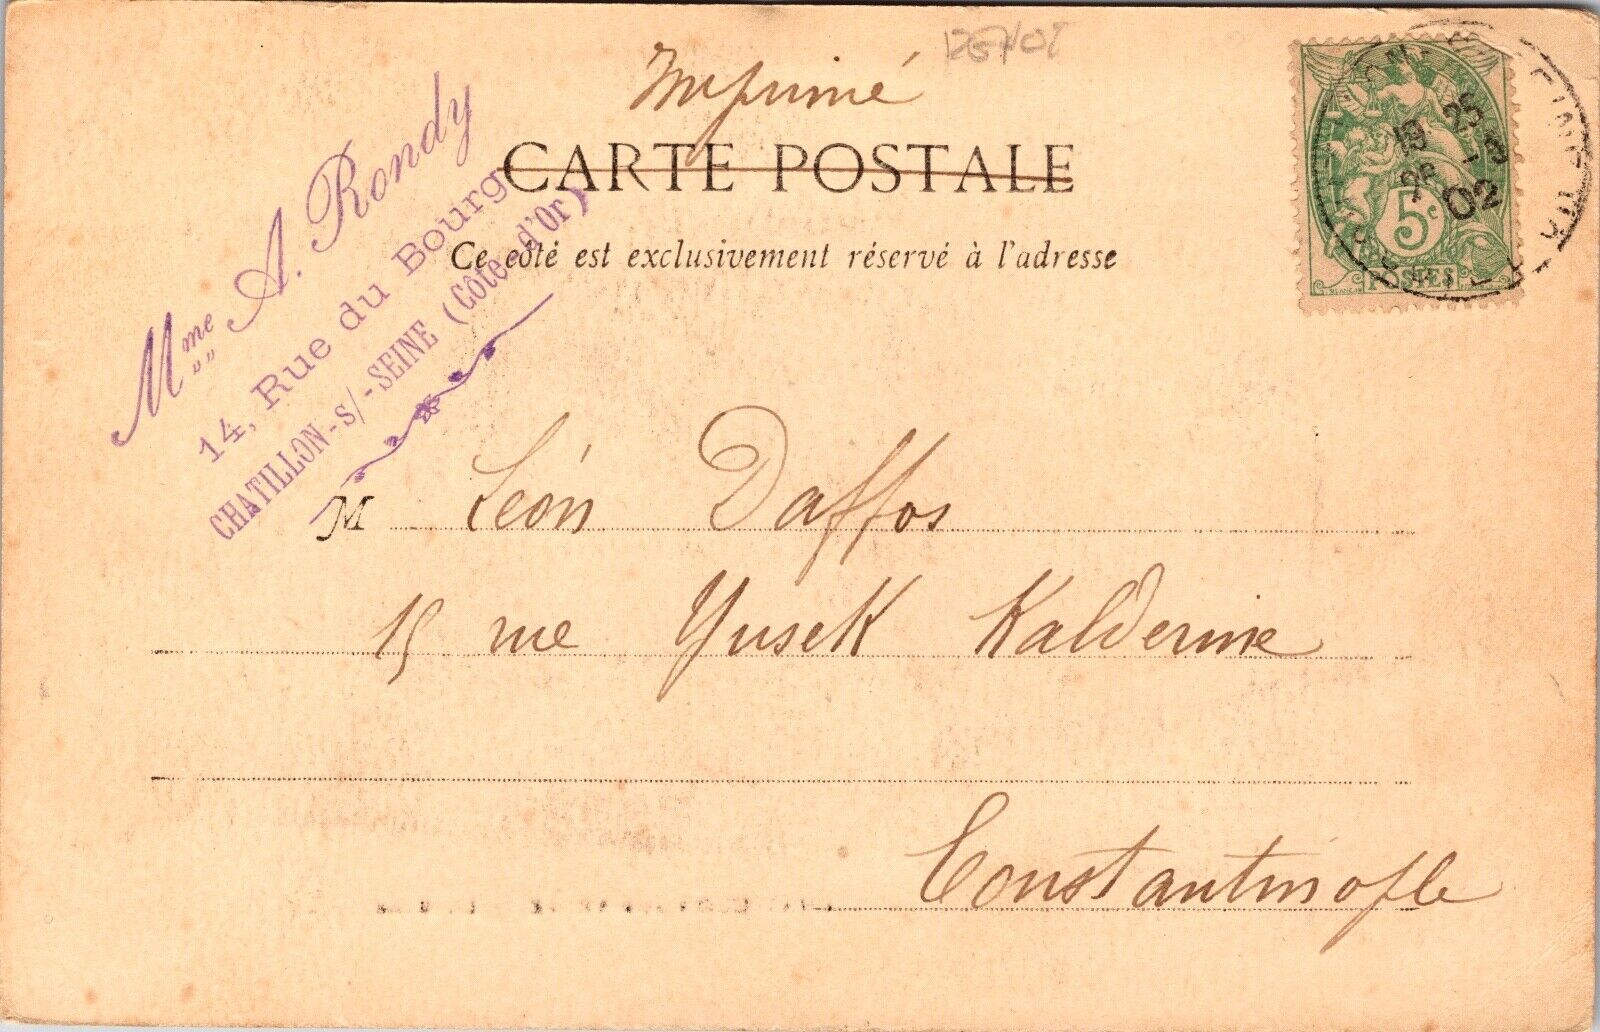 Imprimé
CARTE POSTALE
Ce côté est exclusivement réservé à l'adresse
Mme A. Rondy
14, Rue du Bourg
CHATILLON-S/-SEINE (Côte-d'Or)
5c
POSTES
19 25
02
M Léon Daffos
15 rue Yusek Kalderine
Constantinople